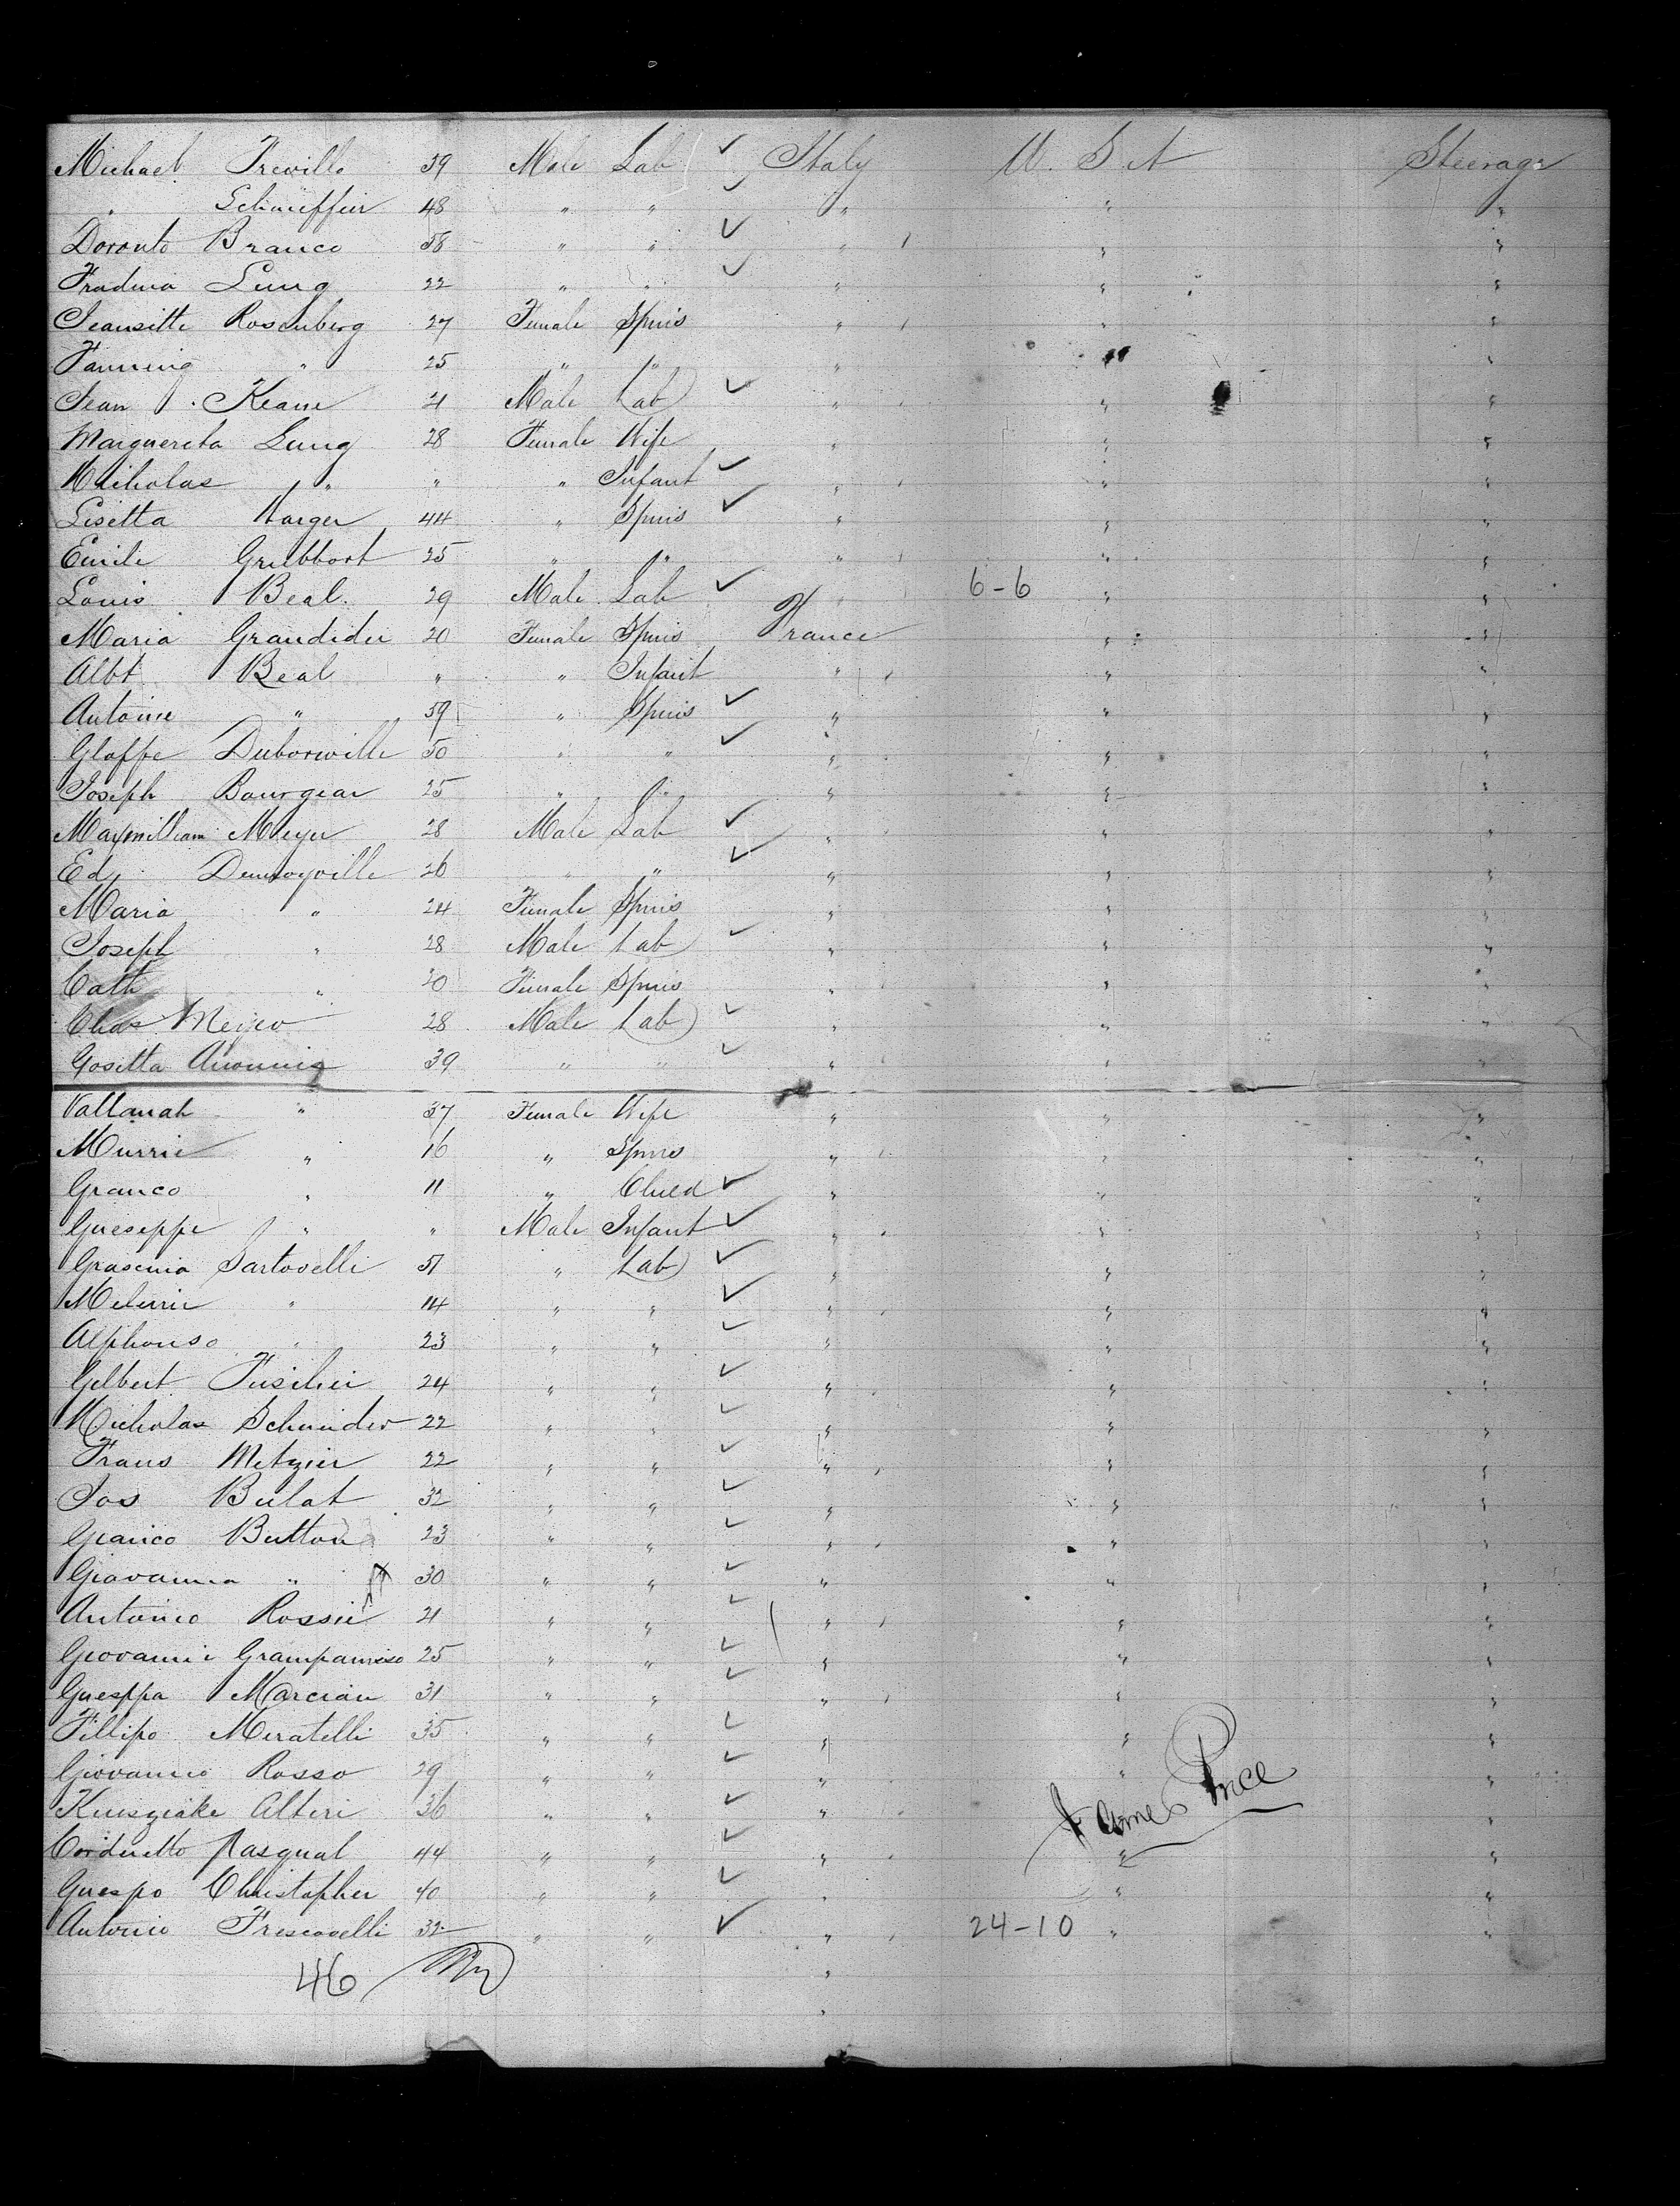 Michael Treville 39 Male Lab Italy U. S. A Steerage
" Schnieffier 48 " " " " "
Doronto Branco 58 " " " " "
Fradina Lung 22 " " " " "
Jeansitte Rosenberg 27 Female Spins " " "
Fanning " 25 " " " " "
Jean Keane 21 Male Lab " " "
Marguereta Lung 28 Female Wife " " "
Nicholas " " " Infant " " "
Lisetta Harger 44 " Spins " " "
Emile Grubbort 25 " " " " "
Louis Beal 29 Male Lab " 6-6 " "
Maria Grandidier 20 Female Spins France " "
Albt Beal " " Infant " " "
Antoine " 59 " Spins " " "
Gloffe Duborwille 50 " " " " "
Joseph Bourgear 25 " " " " "
Maymilliam Meyer 28 Male Lab " " "
Ed Demoyville 26 " " " " "
Maria " 24 Female Spins " " "
Joseph " 28 Male Lab " " "
Cath " 30 Female Spins " " "
Chas Meyer 28 Male Lab " " "
Gositta 39 " " " " "
Vallanah " 37 Female Wife " " "
Murrie " 16 " Spins " " "
Granco " 11 " Child " " "
Gueseppe " " Male Infant " " "
Grasenia Sartovelli 51 " Lab " " "
Melurrie " 14 " " " " "
Alphonso " 23 " " " " "
Gelbert Fusilier 24 " " " " "
Nicholas Schneider 22 " " " " "
Frans Metzier 22 " " " " "
Jos Bulat 32 " " " " "
Granco Button 23 " " " " "
Giovannia " 30 " " " " "
Antonio Rossie 21 " " " " "
Giovanni Grampamiso 25 " " " " "
Guesppa Marcian 31 " " " " "
Fillipo Meratelli 35 " " " " "
Giovannio Rosso 29 " " " " "
Kuisziake Alteri 36 " " " James Price "
Corduetto Pasqual 44 " " " " "
Guespo Christopher 40 " " " " "
Antonio Frescovelli 32 " " " 24-10 " "
46